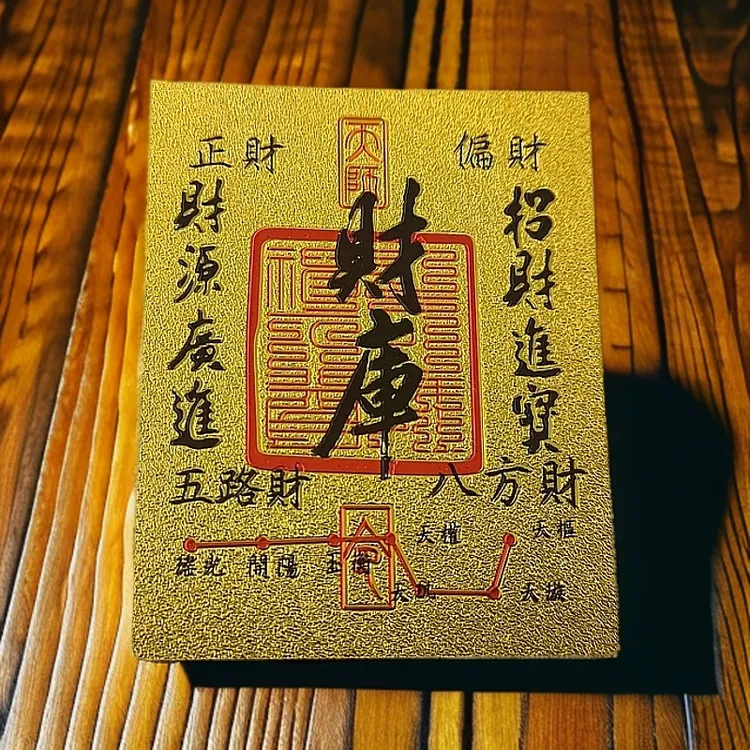 天師
正財
偏財
財庫
招財進寶
財源廣進
五路財
八方財
天權
天樞
瑤光 開陽 玉衡
天璇